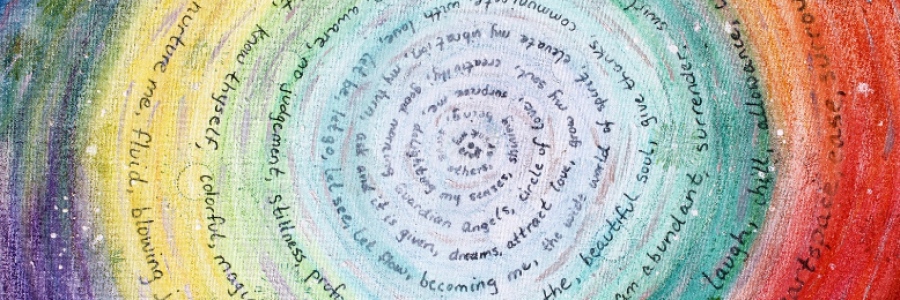 nurture me, fluid, blowing
know thyself, colorful,
aware, no judgement, stillness,
communicate with love, let be, let go, let see, let flow, becoming me, the wide world of spirit
elevate my vibration, my turn, ask and it is given, dreams, attract love, grow my soul, creativity, good morning guardian angels, circle of love,
surprise me, delighting my senses, shining
others.
give thanks,
the, beautiful soul,
an abundant, surrender,
laugh, allowance,
artspace, ease,